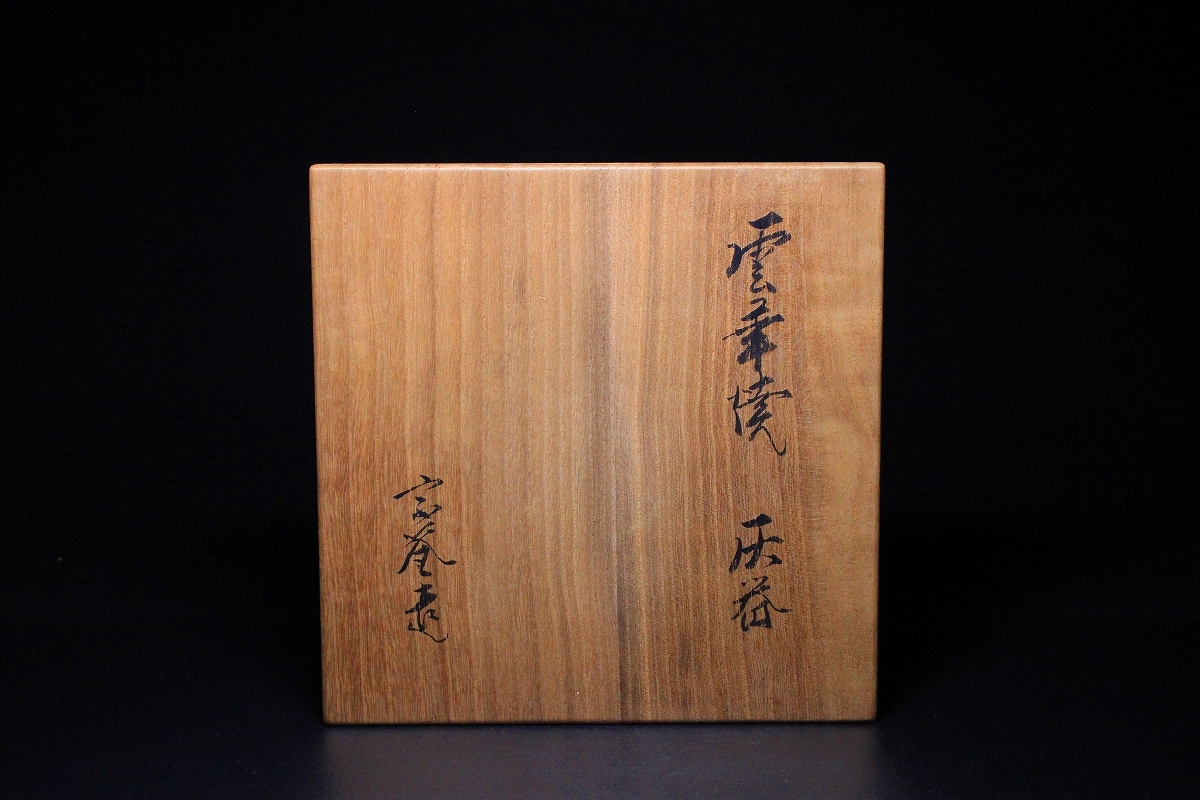 雲華焼 灰器
宗
造